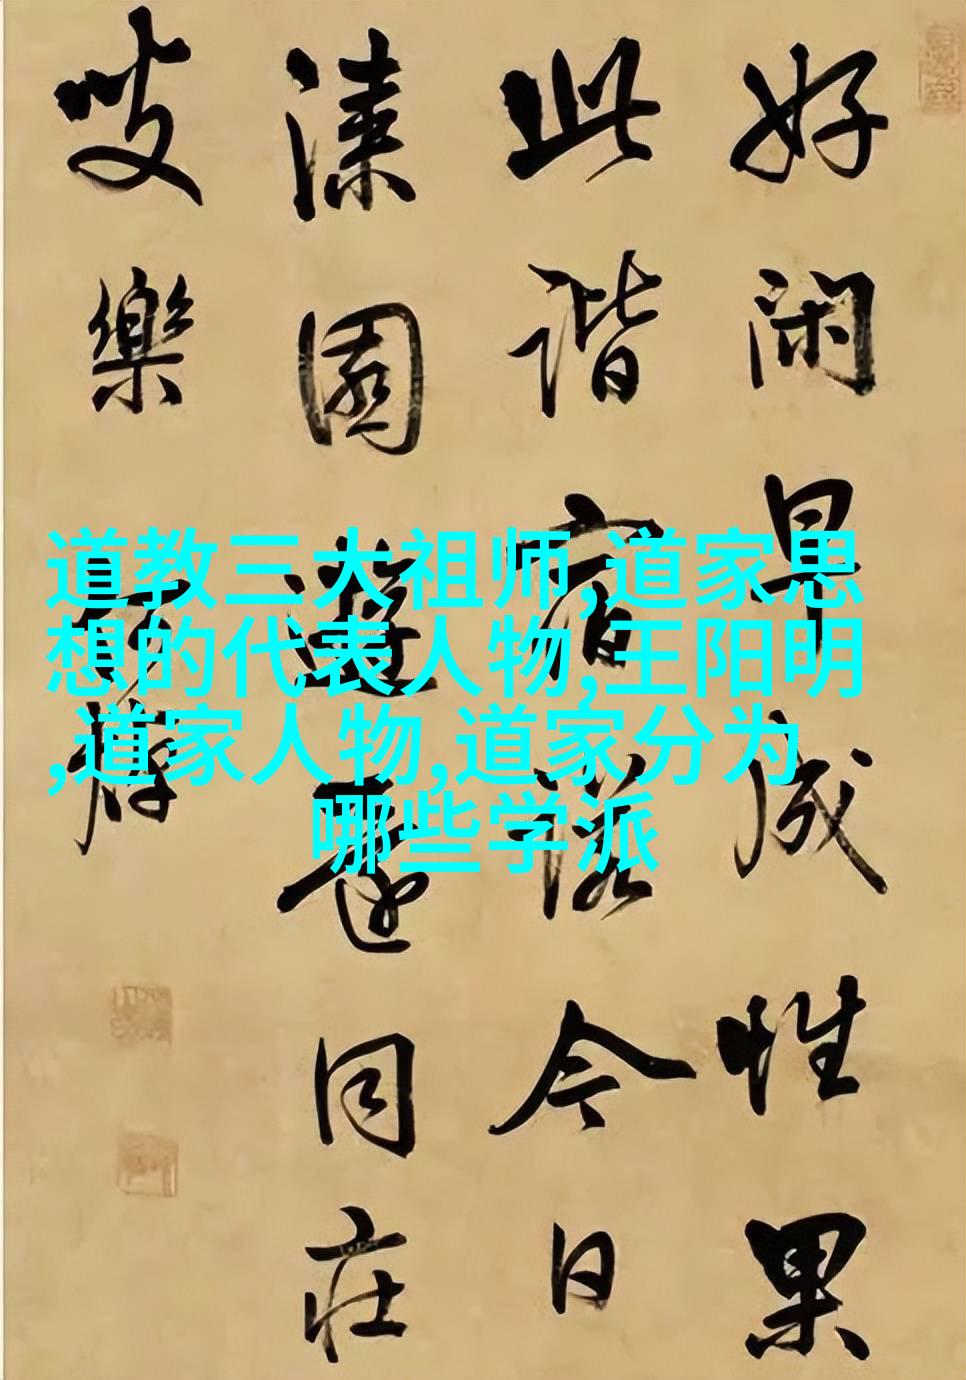 好闲早成性果
此谐宿诺今日
漆園遊還同庄
叟樂
道教三大祖师,道家思
想的代表人物,王阳明
,道家人物,道家分为
哪些学派